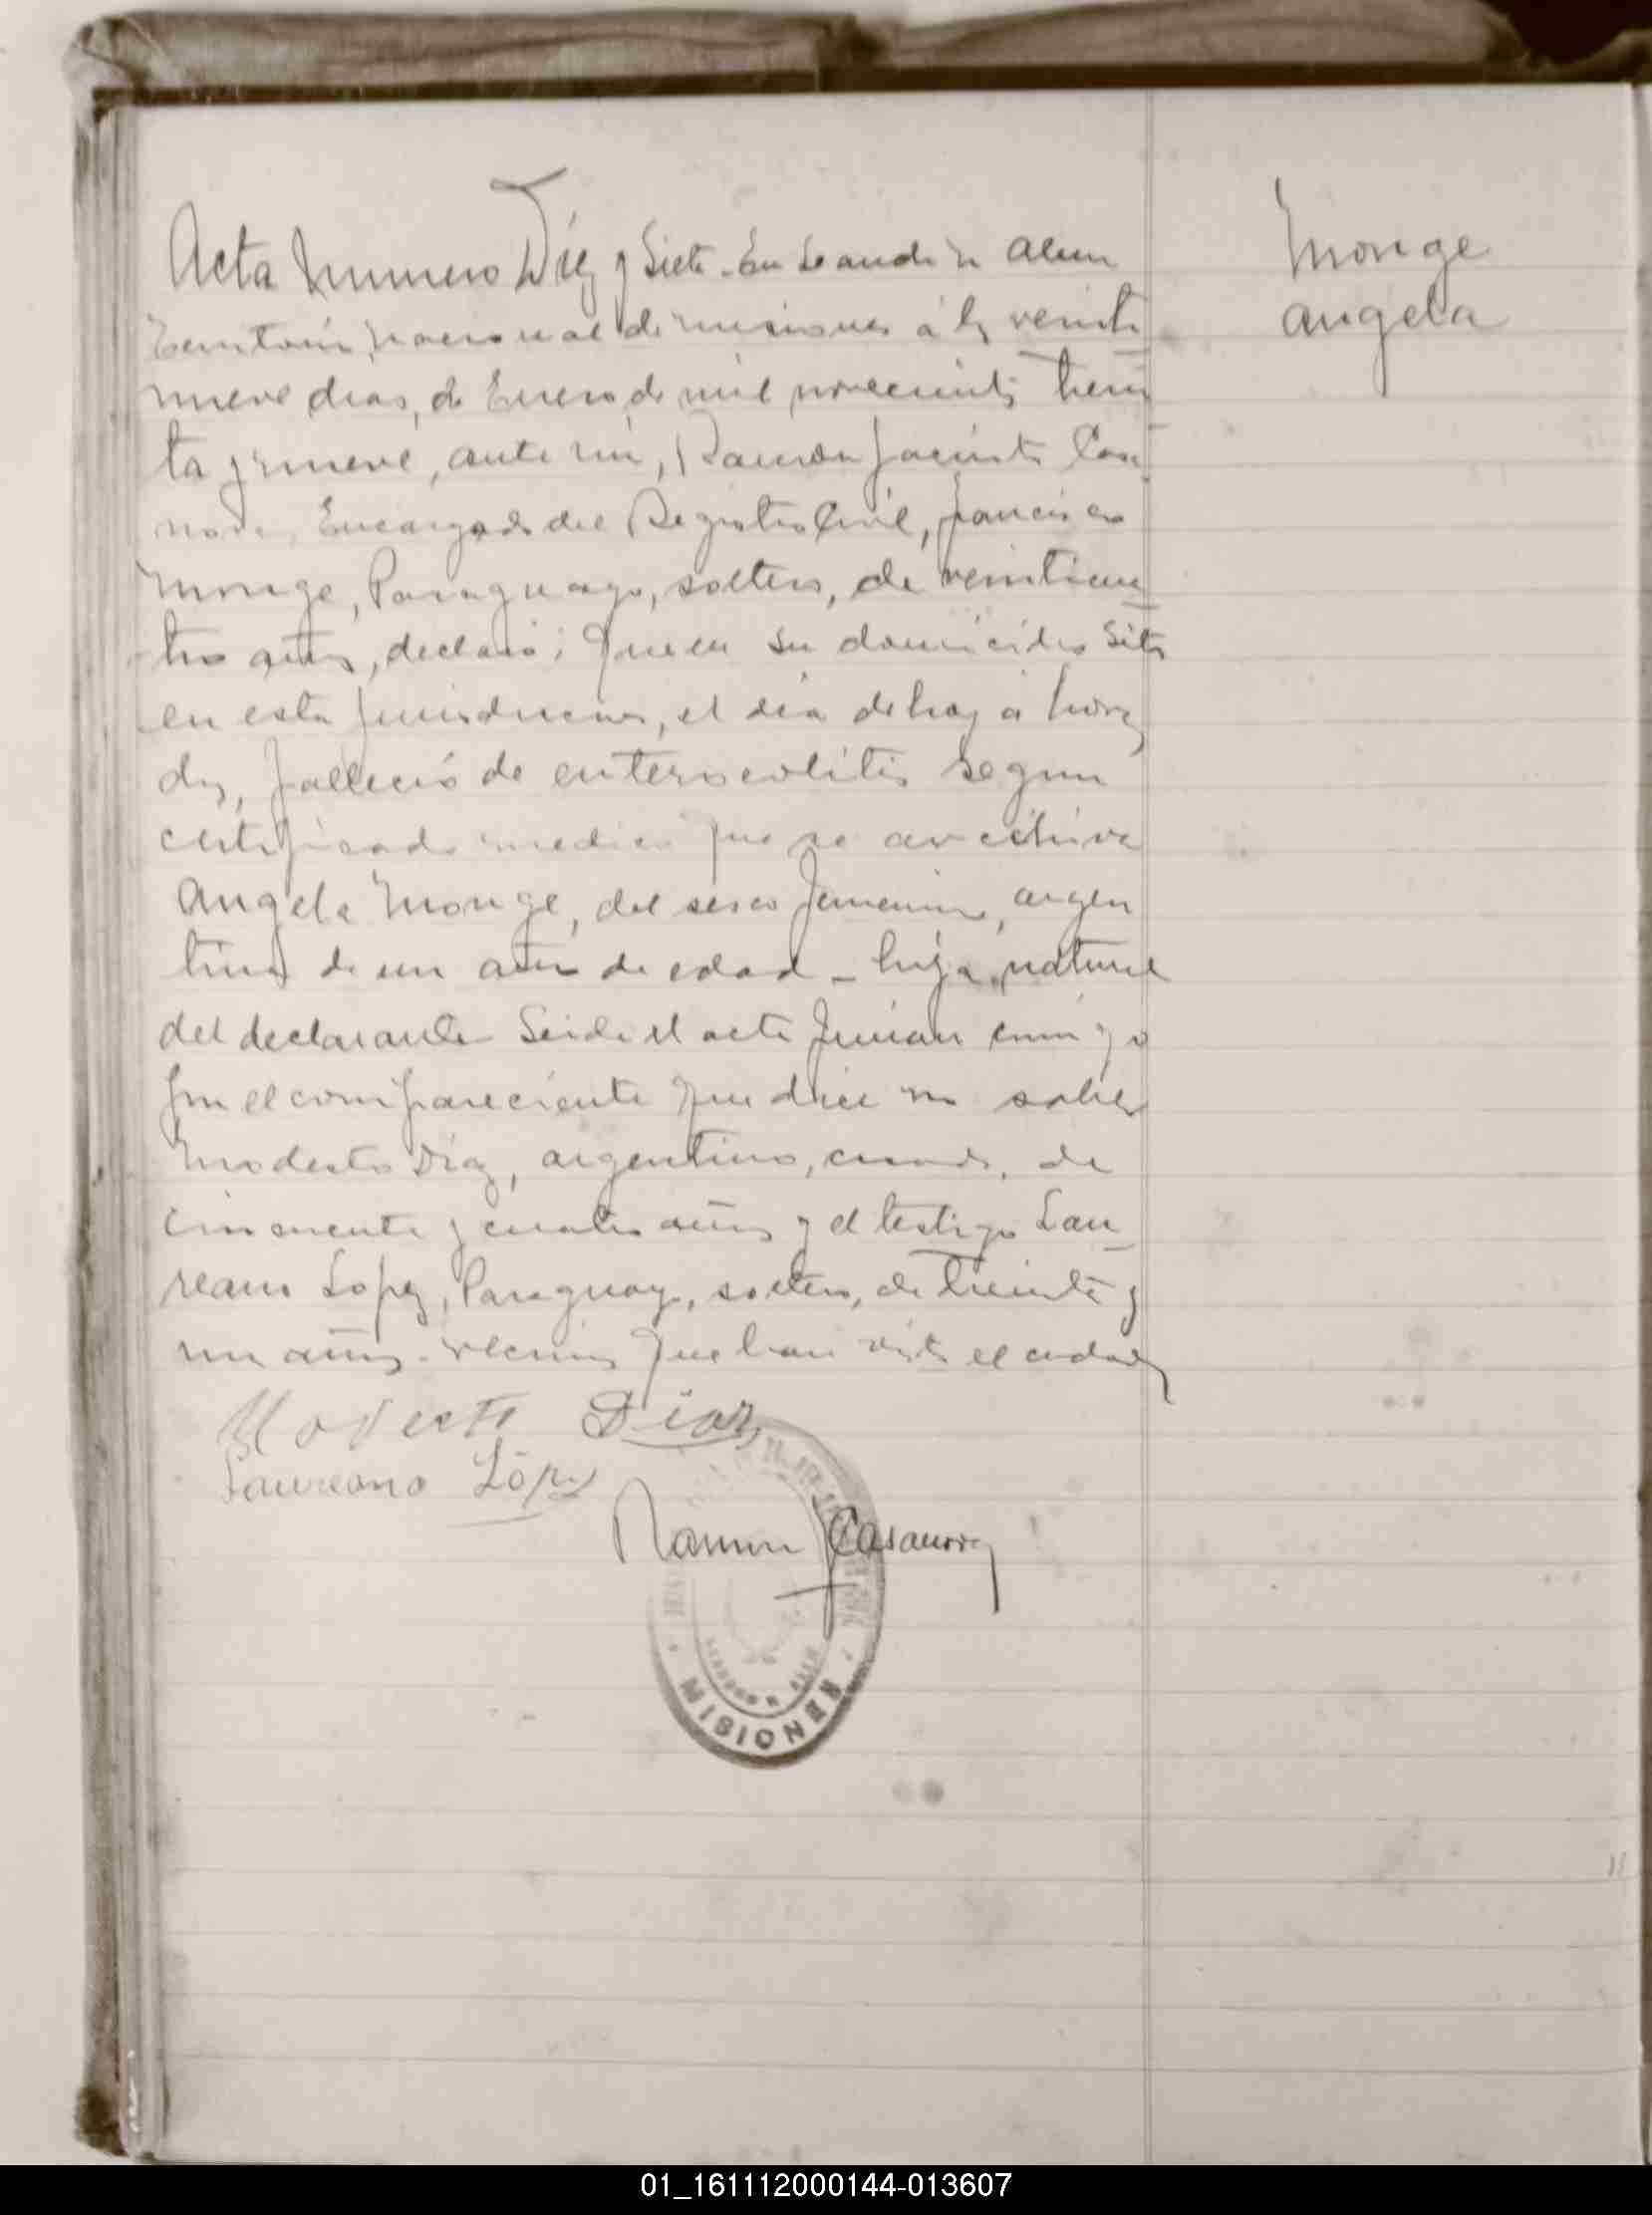 Acta Numero Diez y Siete - En Leandro N Alem
Monge
Angela
Territorio Nacional de Misiones á los veinti
nueve dias, de Enero de mil novecientos trein
ta y nueve, ante mi, Ramón Jacinto Casa
nova, Encargado del Registro Civil, Francisco
Monge, Paraguayo, soltero, de veinticua
tro años, declaró; Que en su domicilio sito
en esta jurisdiccion, el dia de hoy a horas
dos, falleció de enterocolitis segun
certificado medico que se archiva
Angela Monge, del sexo femenino, argen
tina de un año de edad - hija natural
del declarante Leida el acta firman conmigo
por el compareciente que dice no saber
Modesto Diaz, argentino, casado, de
cincuenta y cuatro años y el testigo Lau
reano Lopez, Paraguayo, soltero, de treinta y
un años - vecinos que han visto el cadaver
Modesto Diaz
Laureano López
Ramon J Casanova
MISIONES
01_161112000144-013607